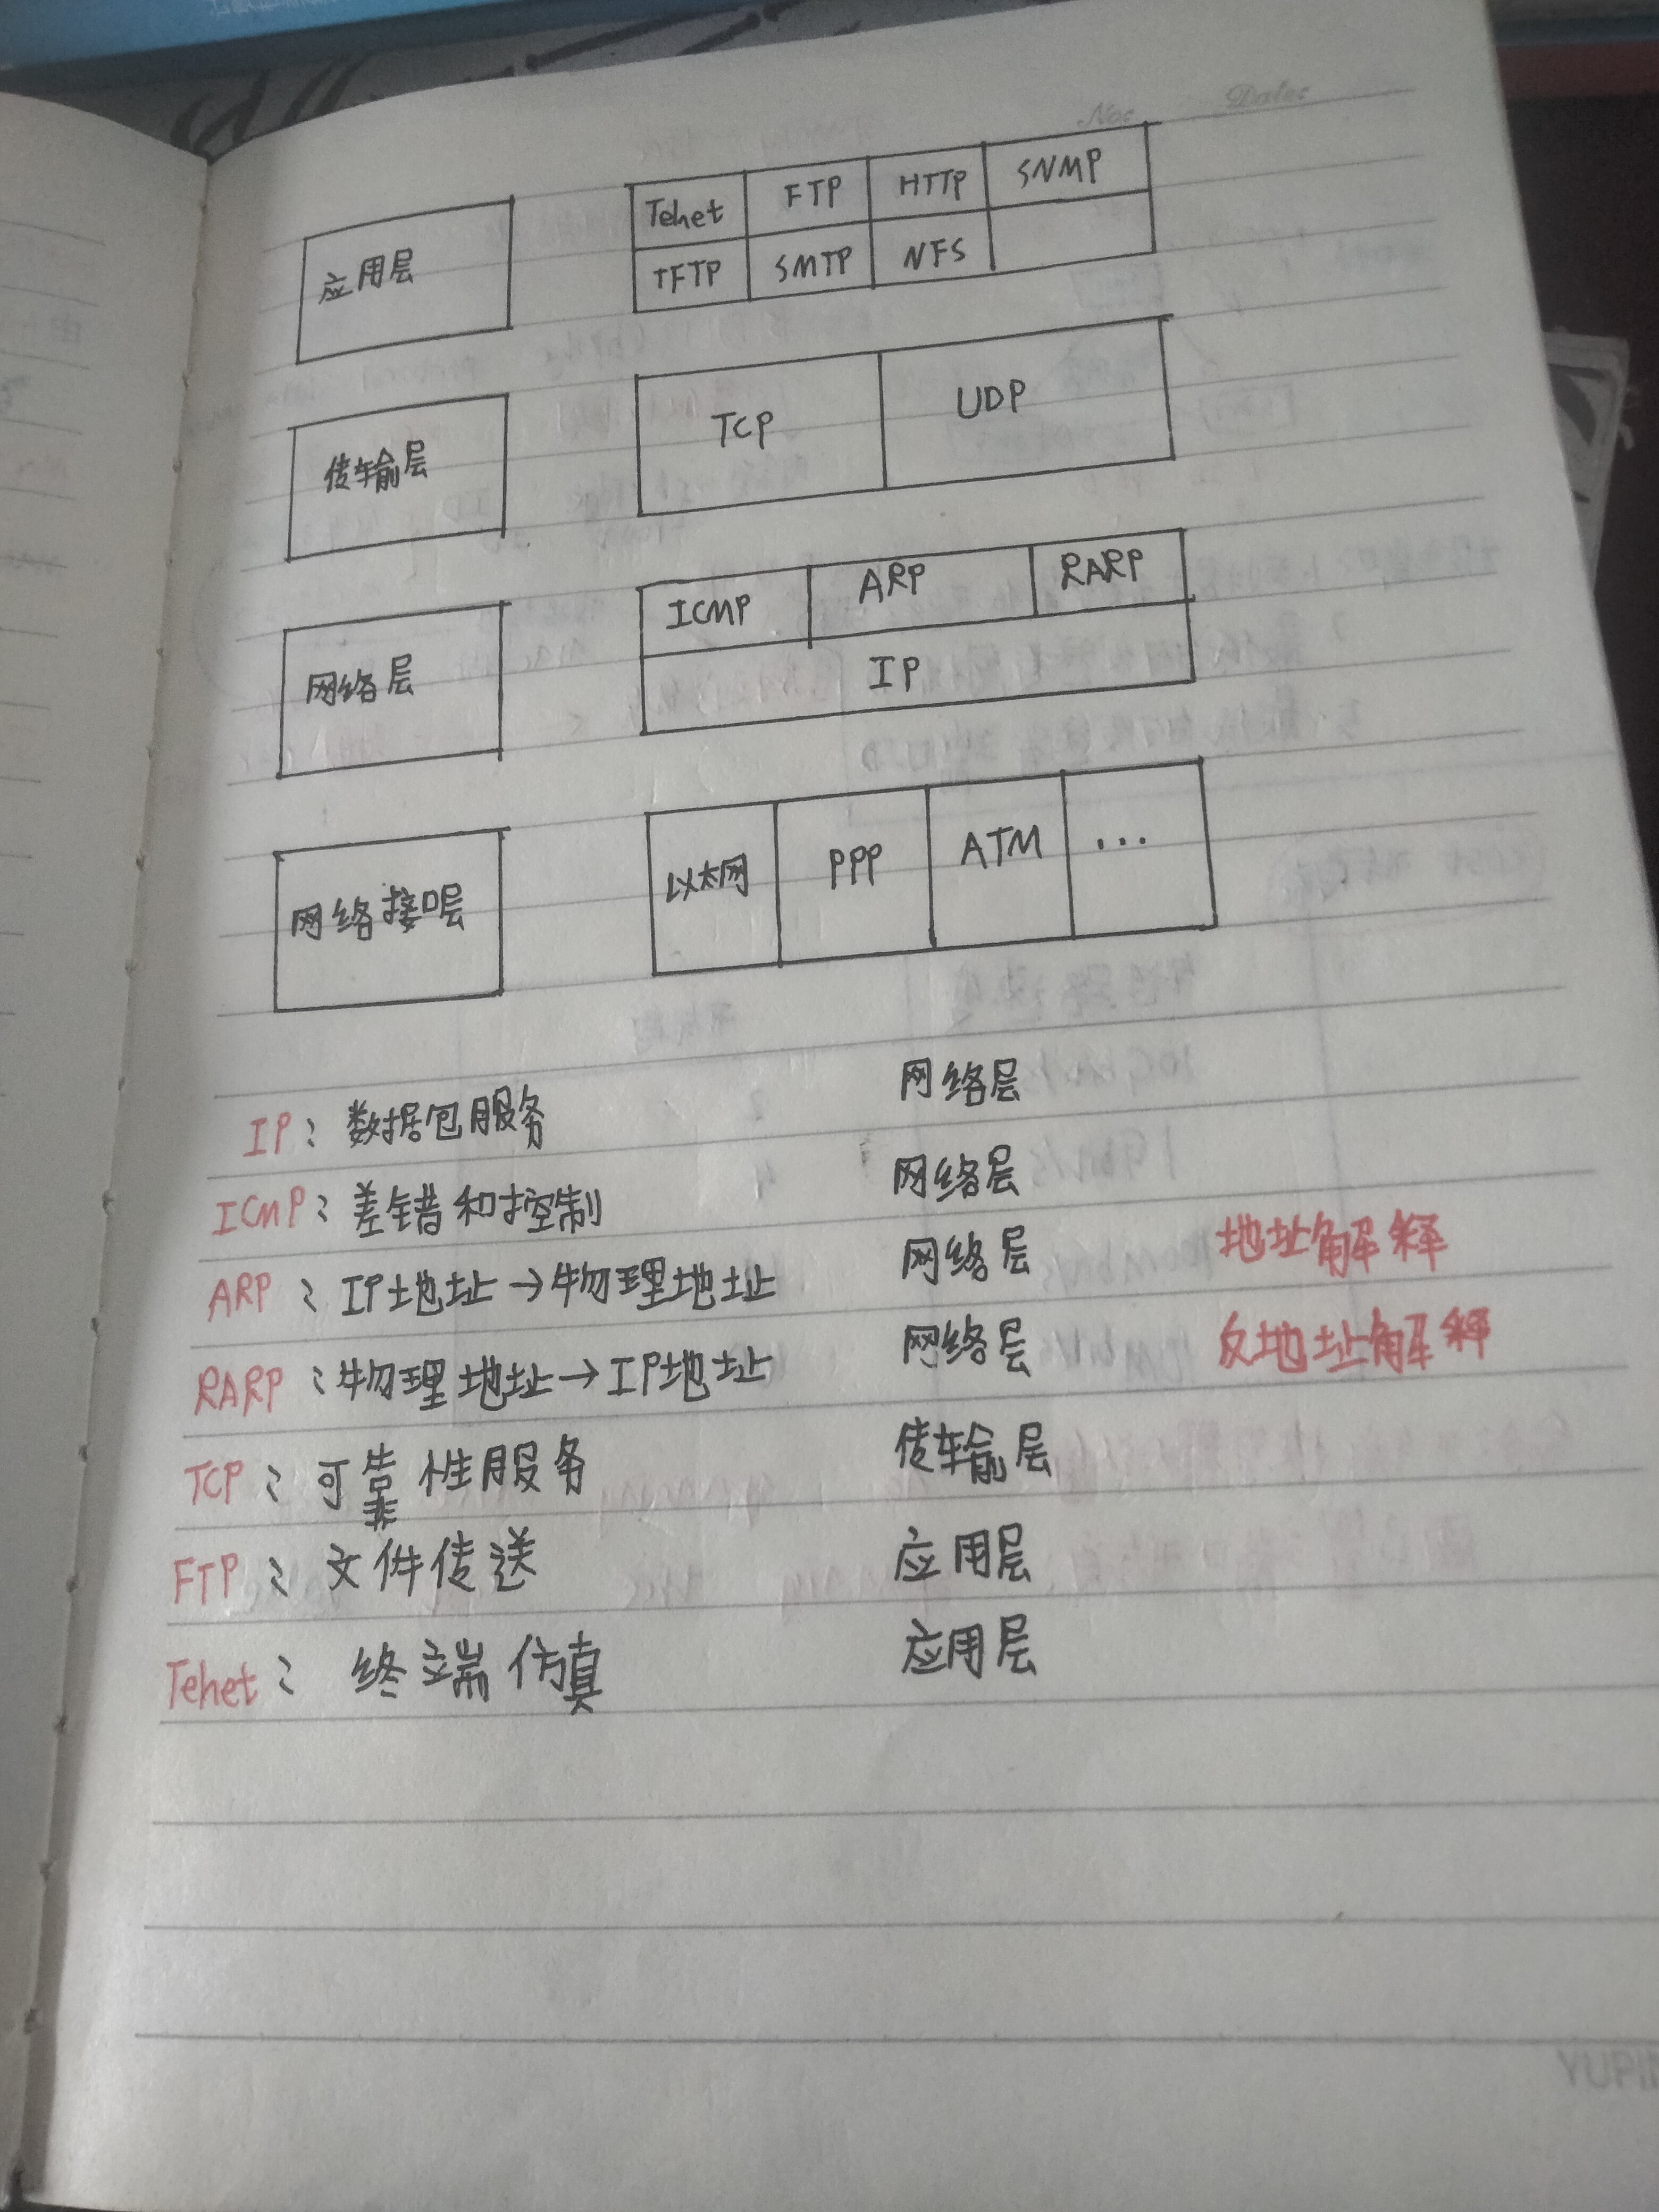 No: Date:
应用层 Tehet FTP HTTP SNMP
TFTP SMTP NFS
传输层 TCP UDP
网络层 ICMP ARP RARP
IP
网络接口层 以太网 PPP ATM ...
IP: 数据包服务 网络层
ICMP: 差错和控制 网络层
ARP: IP地址→物理地址 网络层 地址解释
RARP: 物理地址→IP地址 网络层 反地址解释
TCP: 可靠性服务 传输层
FTP: 文件传送 应用层
Tehet: 终端仿真 应用层